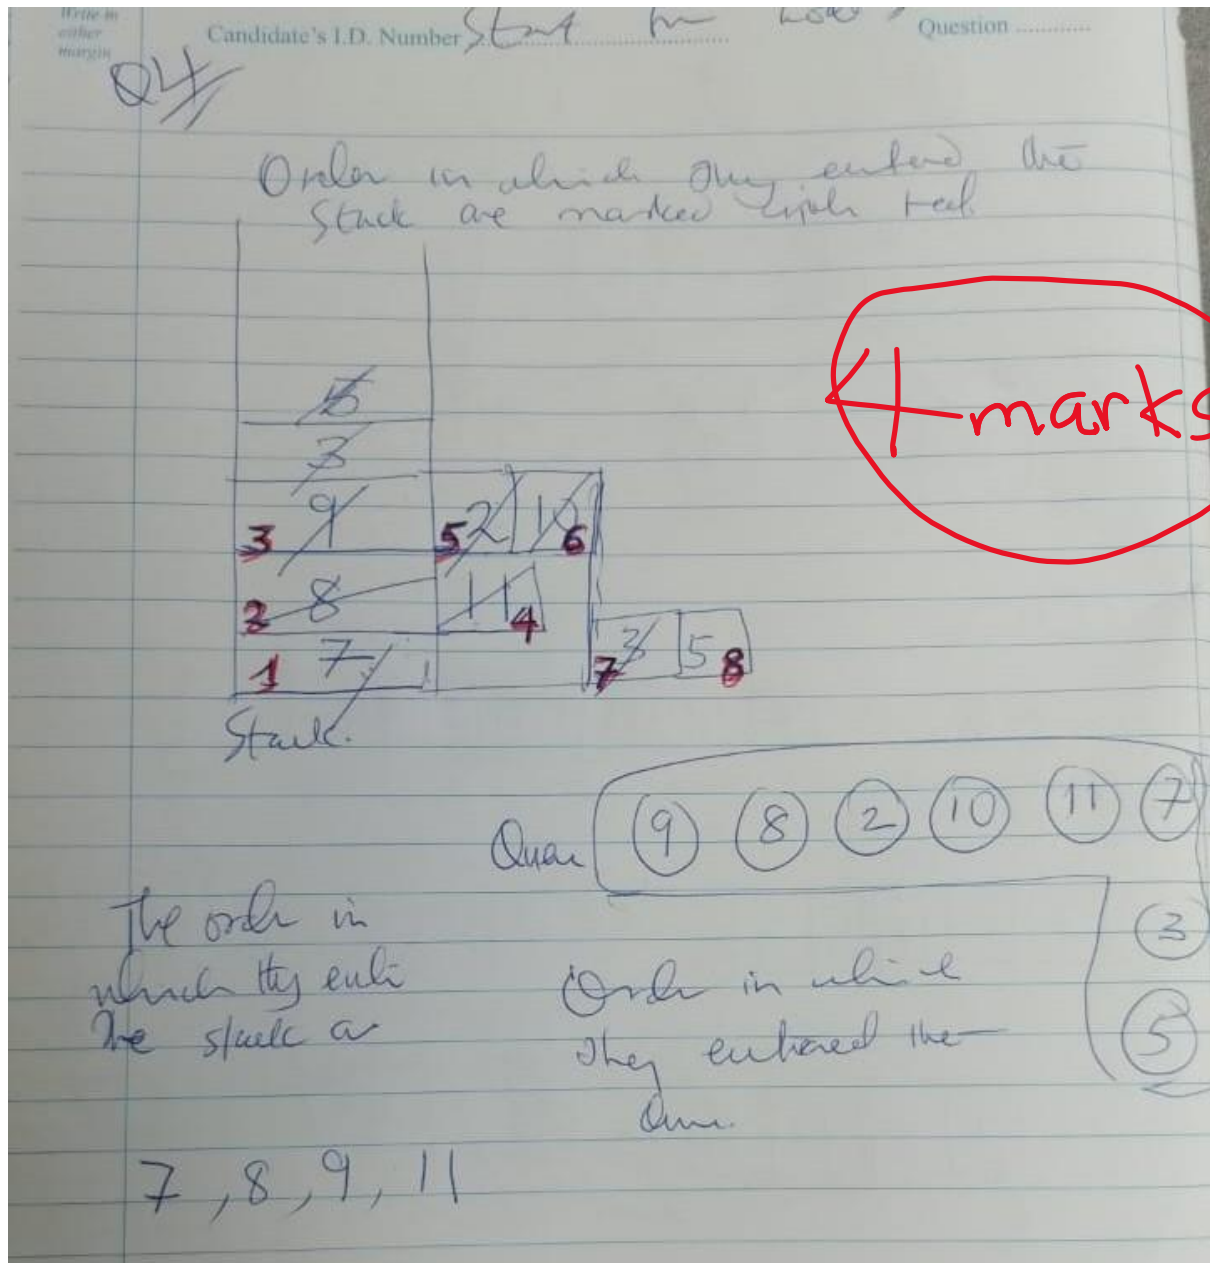 Write in
either
margin
Candidate's I.D. Number Start
Question
Q4
Order in which they entered the
Stack are marked with red.
4 marks
5
3
3 9 5 2 10 6
2 8 11 4
1 7 7 3 5 8
Stack.
9 8 2 10 11 7
The order in
3
which they
Order in which
the stack
they entered the
5
7, 8, 9, 11